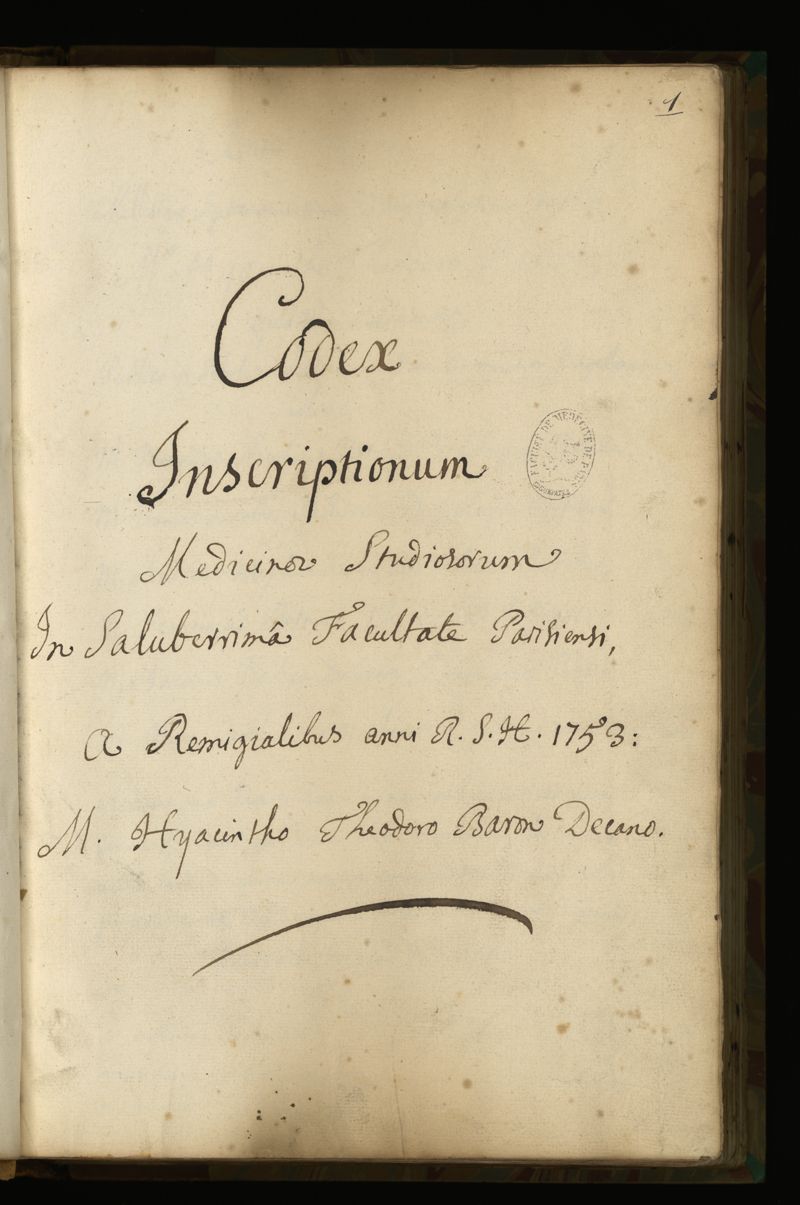 1
Codex
Inscriptionum
Medicinæ Studiosorum
In Saluberrimâ Facultate Parisiensi,
A Remigialibus anni R. S. H. 1753:
M. Hyacintho Theodoro Baron Decano.
FACULTÉ DE MÉDECINE DE PARIS